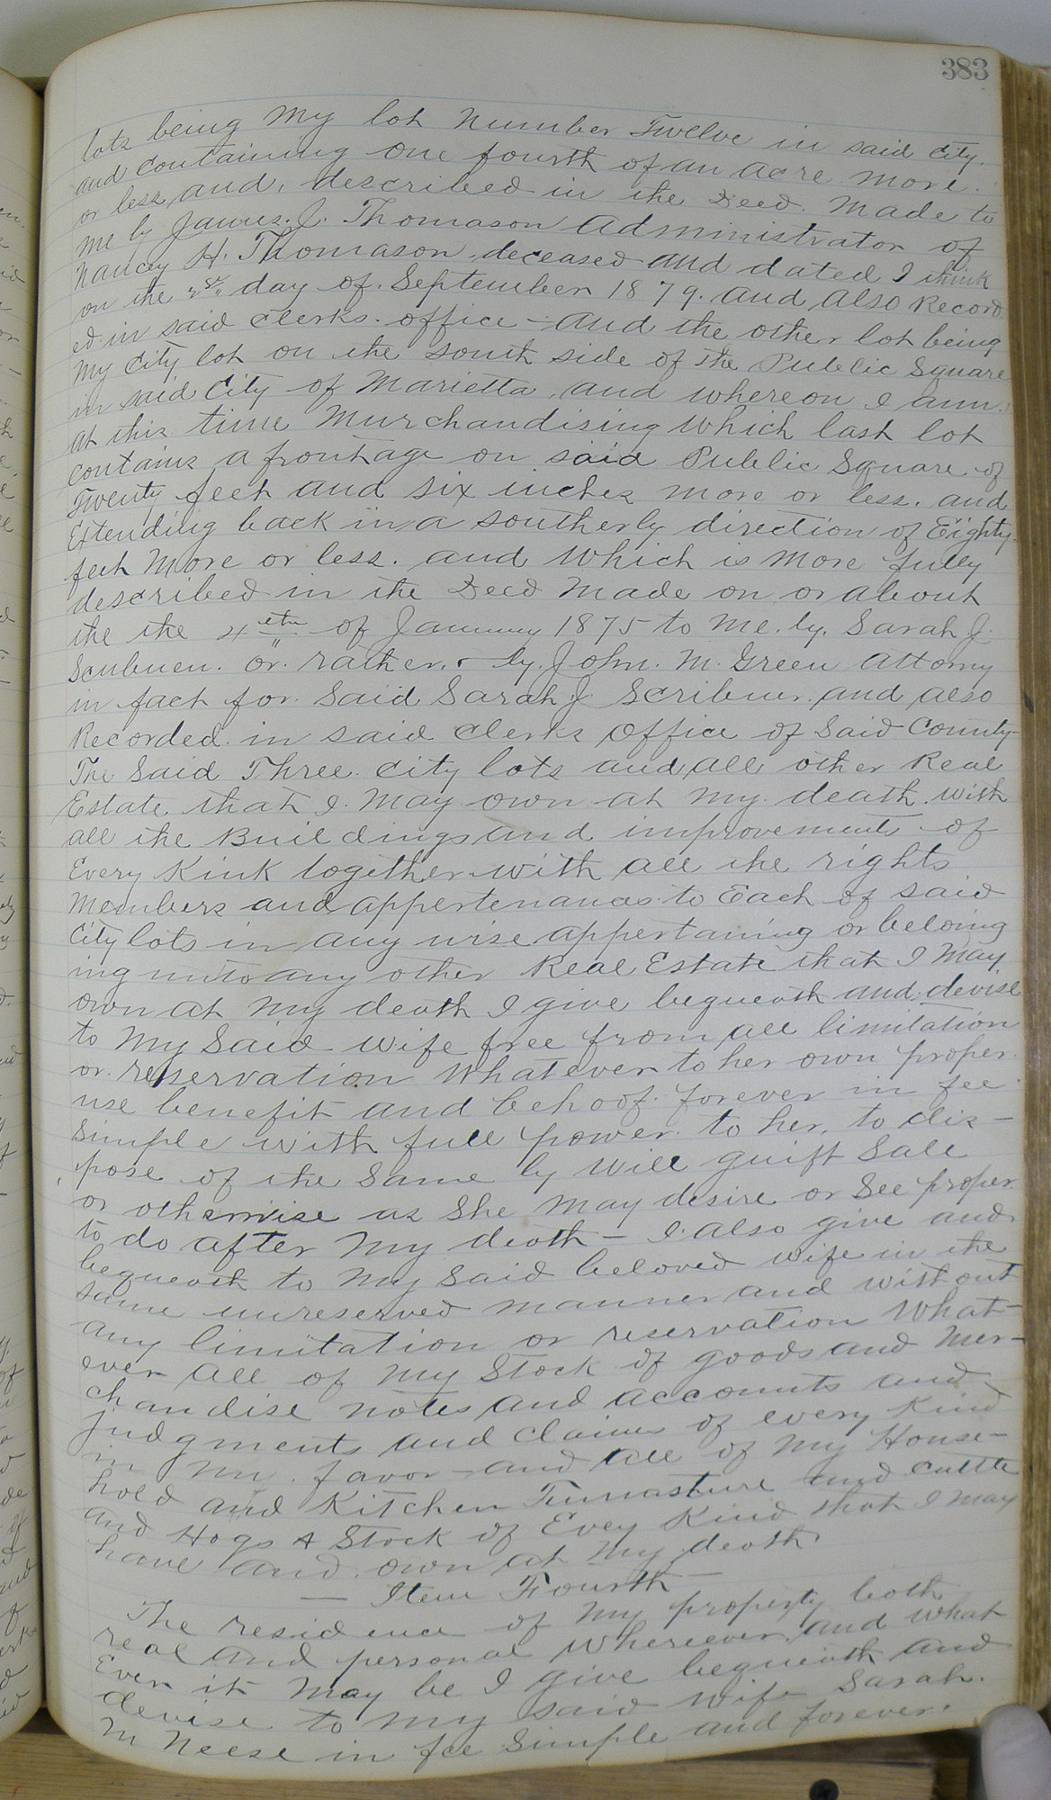 383
lots being My lot Number Twelve in said City.
and containing one fourth of an acre more.
or less, and, described in the Deed. Made to
me by James. J. Thomason Administrator of
Nancy H. Thomason, deceased and dated I think
on the day of. September 1879. and also Record
ed in said clerks. office - and the other lot being
My City lot on the south side of the Public Square
in said City of Marietta, and whereon I am
at this time Murchandising which last lot
contains a frontage on said Public Square of
Twenty feet and six inches more or less. and
Extending back in a southerly direction of Eighty
feet More or less. and which is More fully
described in the Deed Made on or about
the the 4th of January 1875 to Me. by. Sarah J.
or. rather. by. John. M. Green Attorny
in fact for. Said Sarah J. Scribner. and also
Recorded in said Clerks Office of Said County
The Said Three. City lots and all other Real
Estate that I. May own at My death with
all the Buildings and improvements of
Every Kink together with all the rights
Members and appertenances to Each of said
City lots in any wise appertaining or belong
ing unto any other Real Estate that I May
own at My death I give bequeath and devise
to My Said wife free from all limitation
or reservation Whatever to her own proper
use benefit and behoof. forever in fee
Simple with full power to her. to dis-
pose of the Same by Will guift Sale
or otherwise as She May desire or See proper
to do after My death - I also give and
bequeath to My Said beloved wife in the
same unreserved manner and without
any limitation or reservation What-
ever All of My Stock of goods and Mer-
chandise Notes and accounts and
judgments and claims of every Kind
in favor and all of My House-
hold and Kitchen and cattle
and Hogs & Stock of Evey Kind that I May
have and own at My death.
- Item Fourth -
The residence of My property both
real and personal Whereever and what
Ever it May be I give bequeath and
devise to My said Wife Sarah.
M Neese in fee Simple and forever.